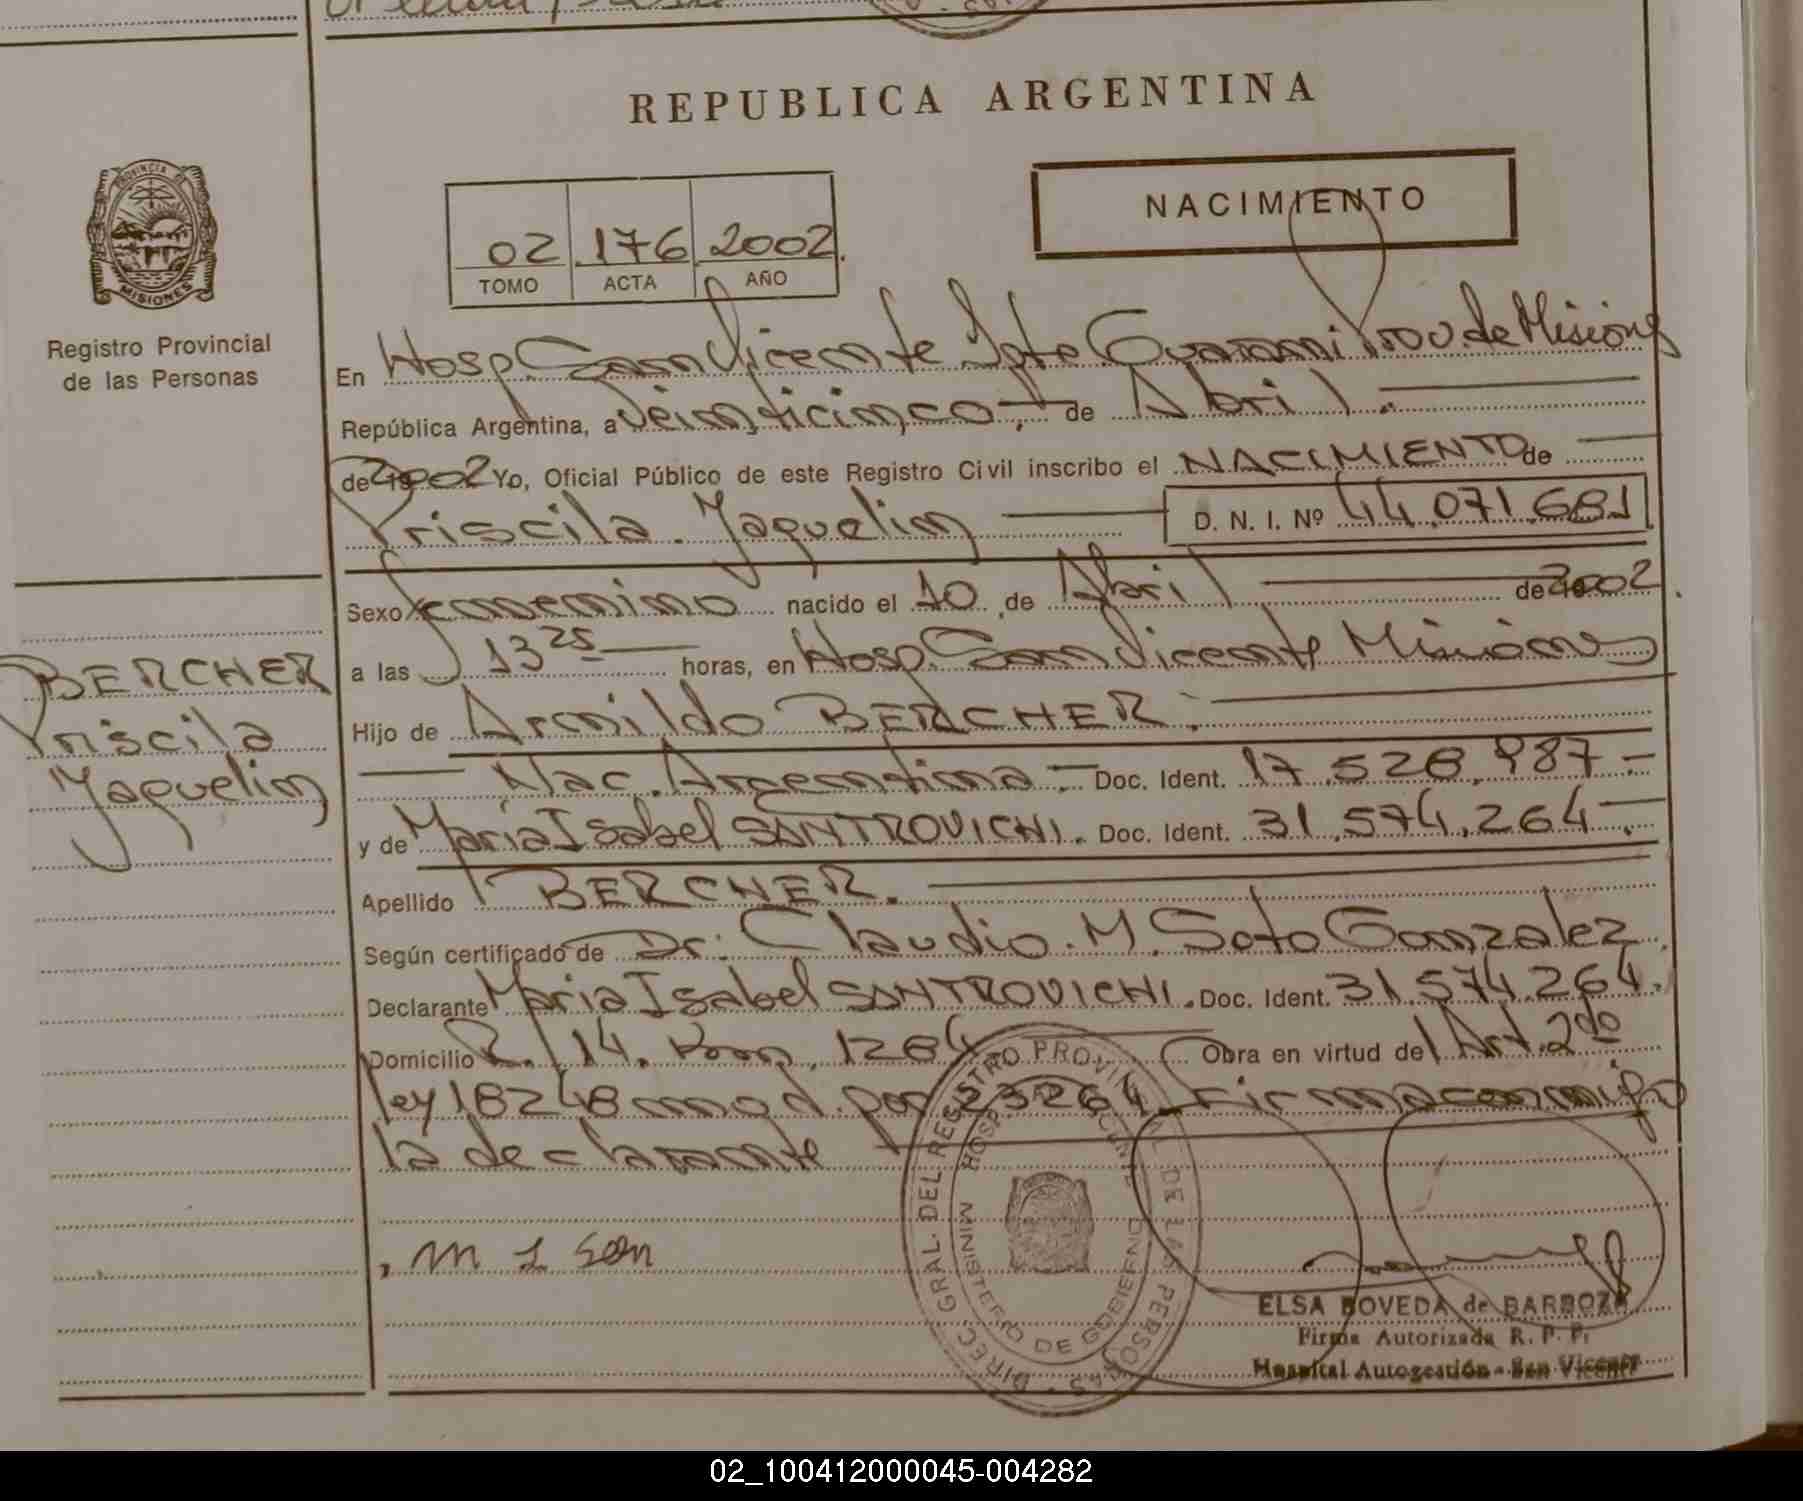 REPUBLICA ARGENTINA
PROVINCIA DE
MISIONES
Registro Provincial
de las Personas
NACIMIENTO
02 176 2002
TOMO ACTA AÑO
En Hosp. San Vicente Dpto Guarani Prov. de Misiones
República Argentina, a Veinticinco de Abril
de 2002 Yo, Oficial Público de este Registro Civil inscribo el NACIMIENTO de
Priscila Jaquelin D. N. I. Nº 44.071.681
Sexo Femenino nacido el 10 de Abril de 2002
a las 13 25 horas, en Hosp. San Vicente Misiones
Hijo de Arnildo BERCHER.
Nac. Argentina - Doc. Ident. 17.528.987.-
y de Maria Isabel SANTROVICHI. Doc. Ident. 31.574.264.-
Apellido BERCHER.
Según certificado de Dr. Claudio M. Soto Gonzalez
Declarante Maria Isabel SANTROVICHI. Doc. Ident. 31.574.264.
Domicilio R. 14. Km, 1264 Obra en virtud del Art. 2do
ley 18248 mod. por 23264 Firma conmigo
la declarante
BERCHER
Priscila
Jaquelin
DIREC. GRAL. DEL REGISTRO PROVINCIAL DE LAS PERSONAS
MINISTERIO DE GOBIERNO
ELSA BOVEDA de BARBOZA
Firma Autorizada R. P. P.
Hospital Autogestión - San Vicente
02_100412000045-004282